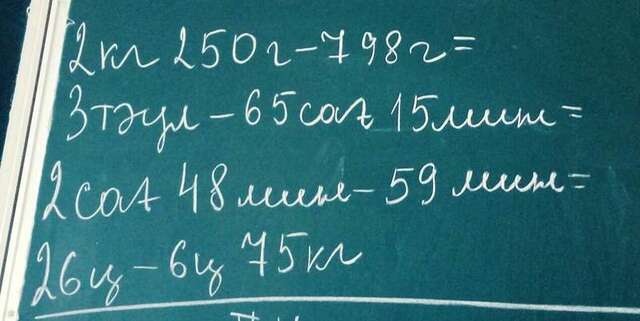 2кг 250г-798г=
3тәул-65сағ 15мин=
2сағ 48мин-59мин=
26ц-6ц 75кг